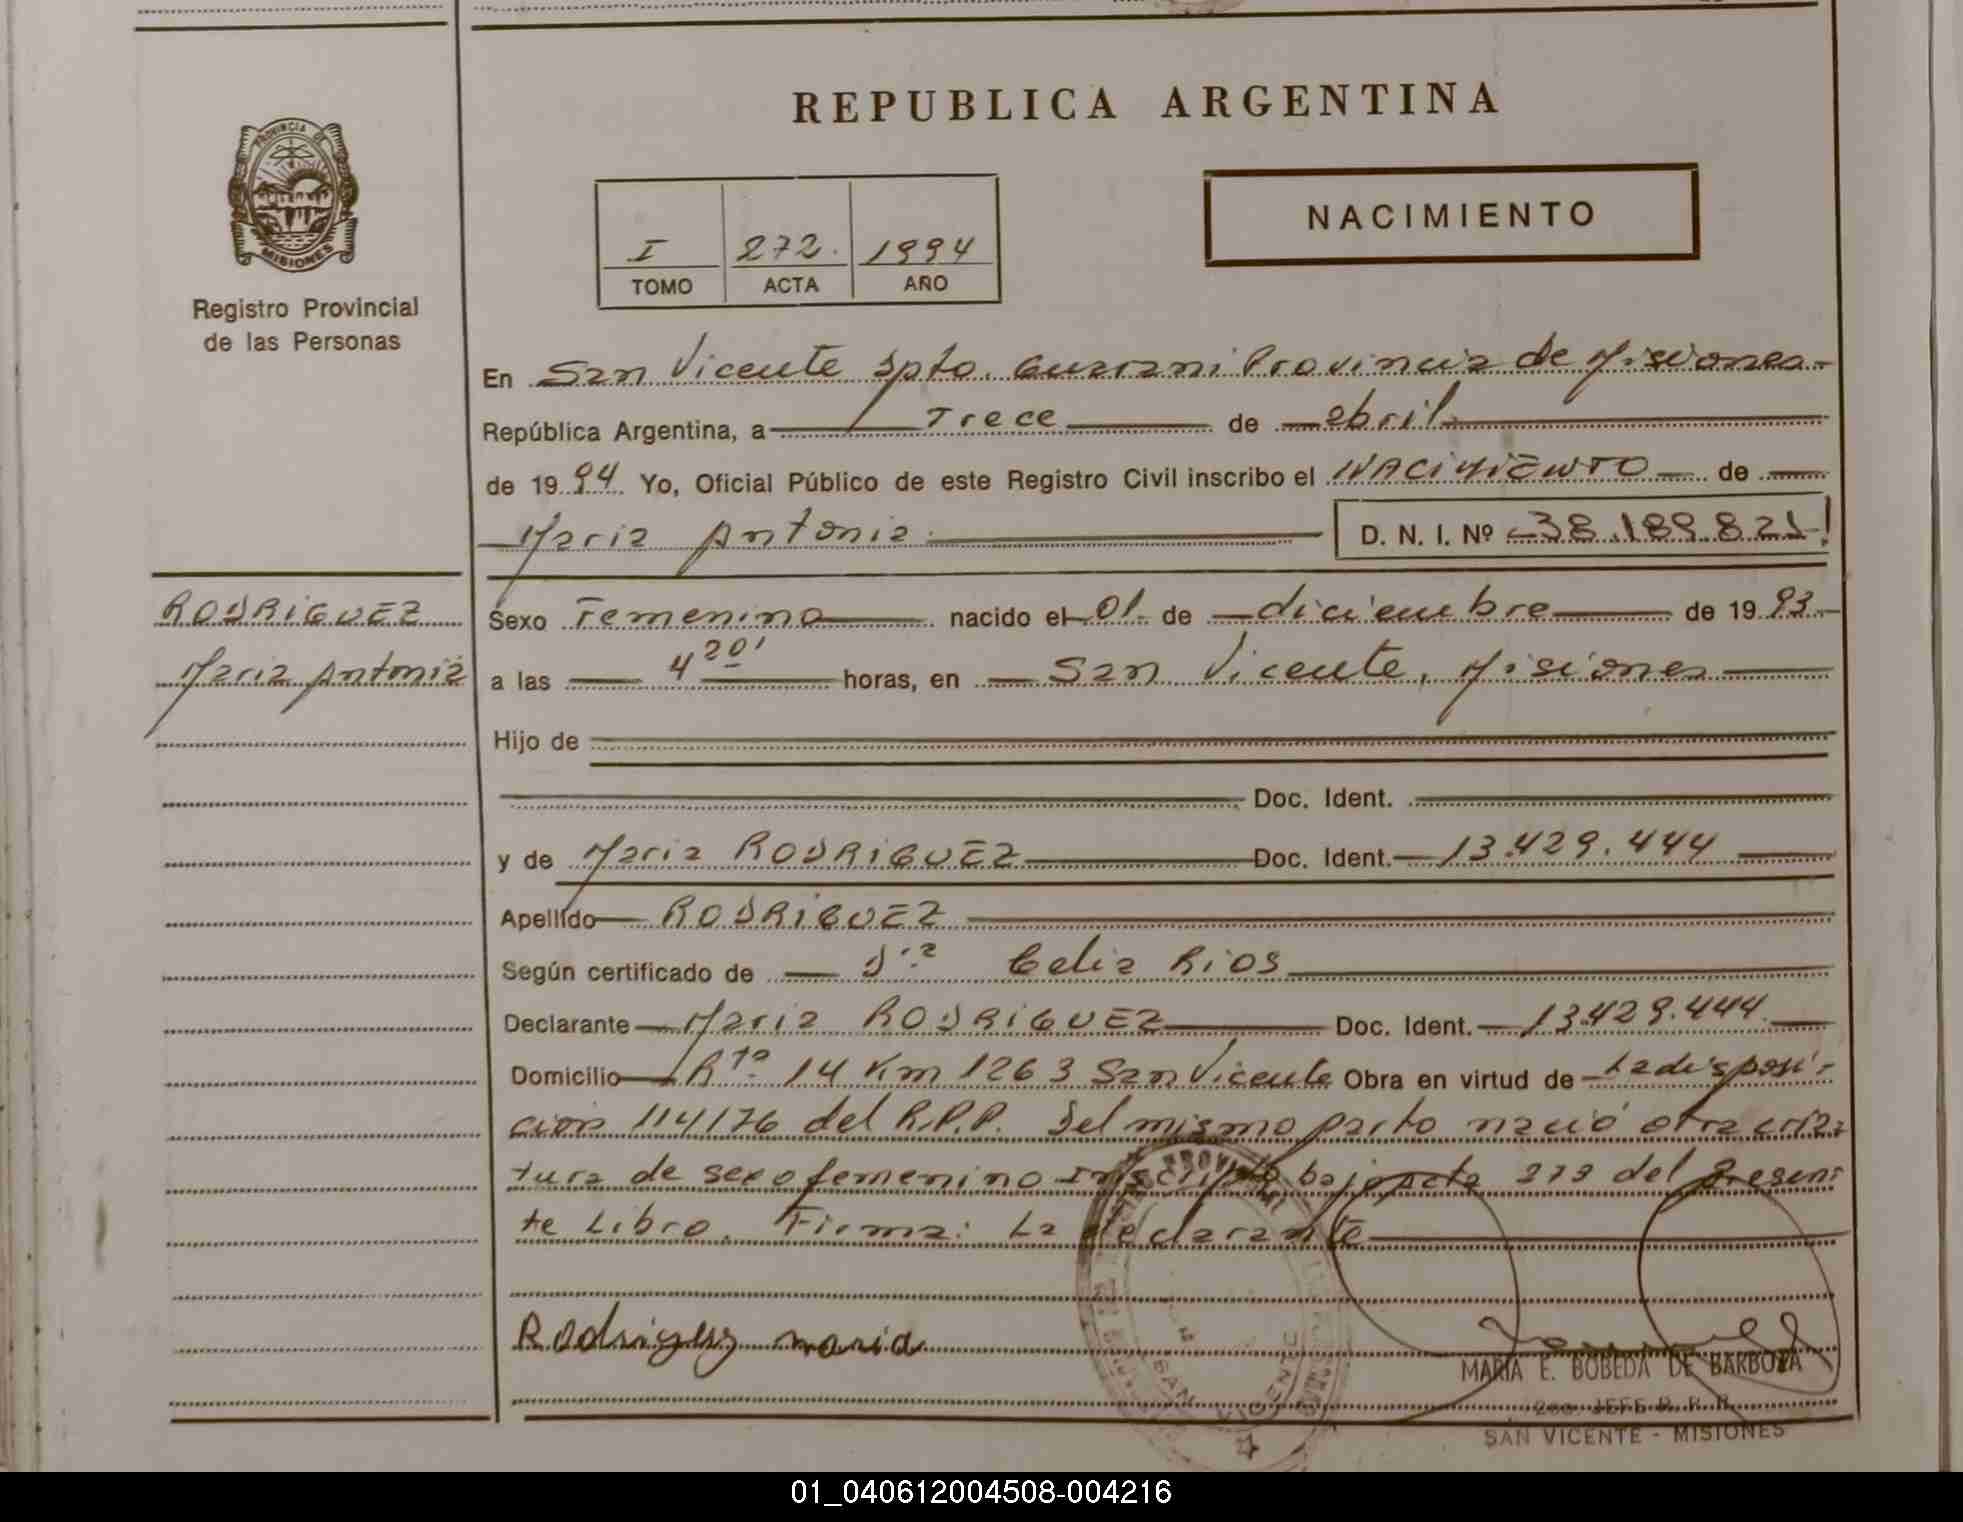 REPUBLICA ARGENTINA
PROVINCIA DE
MISIONES
Registro Provincial
de las Personas
I 272. 1994
TOMO ACTA AÑO
NACIMIENTO
En San Vicente Dpto. Guarani Provincia de Misiones
República Argentina, a Trece de abril
de 1994 Yo, Oficial Público de este Registro Civil inscribo el NACIMIENTO de
Maria Antonia D. N. I. Nº 38.189.821
RODRIGUEZ
Maria Antonia
Sexo Femenino nacido el 01 de diciembre de 1993
a las 4 20' horas, en San Vicente, Misiones
Hijo de
Doc. Ident.
y de Maria RODRIGUEZ Doc. Ident. 13.429.444
Apellido RODRIGUEZ
Según certificado de Dra Celia Rios
Declarante Maria RODRIGUEZ Doc. Ident. 13.429.444
Domicilio Rta 14 Km 1263 San Vicente Obra en virtud de La disposi-
ción 114/76 del R.P.P. Del mismo parto nació otra cria-
tura de sexo femenino Inscripta bajo acta 273 del presen-
te Libro. Firma: La declarante
Rodriguez maria
SAN VICENTE
MARIA E. BOBEDA DE BARBOZA
2do. JEFE R. P. P.
SAN VICENTE - MISIONES
01_040612004508-004216